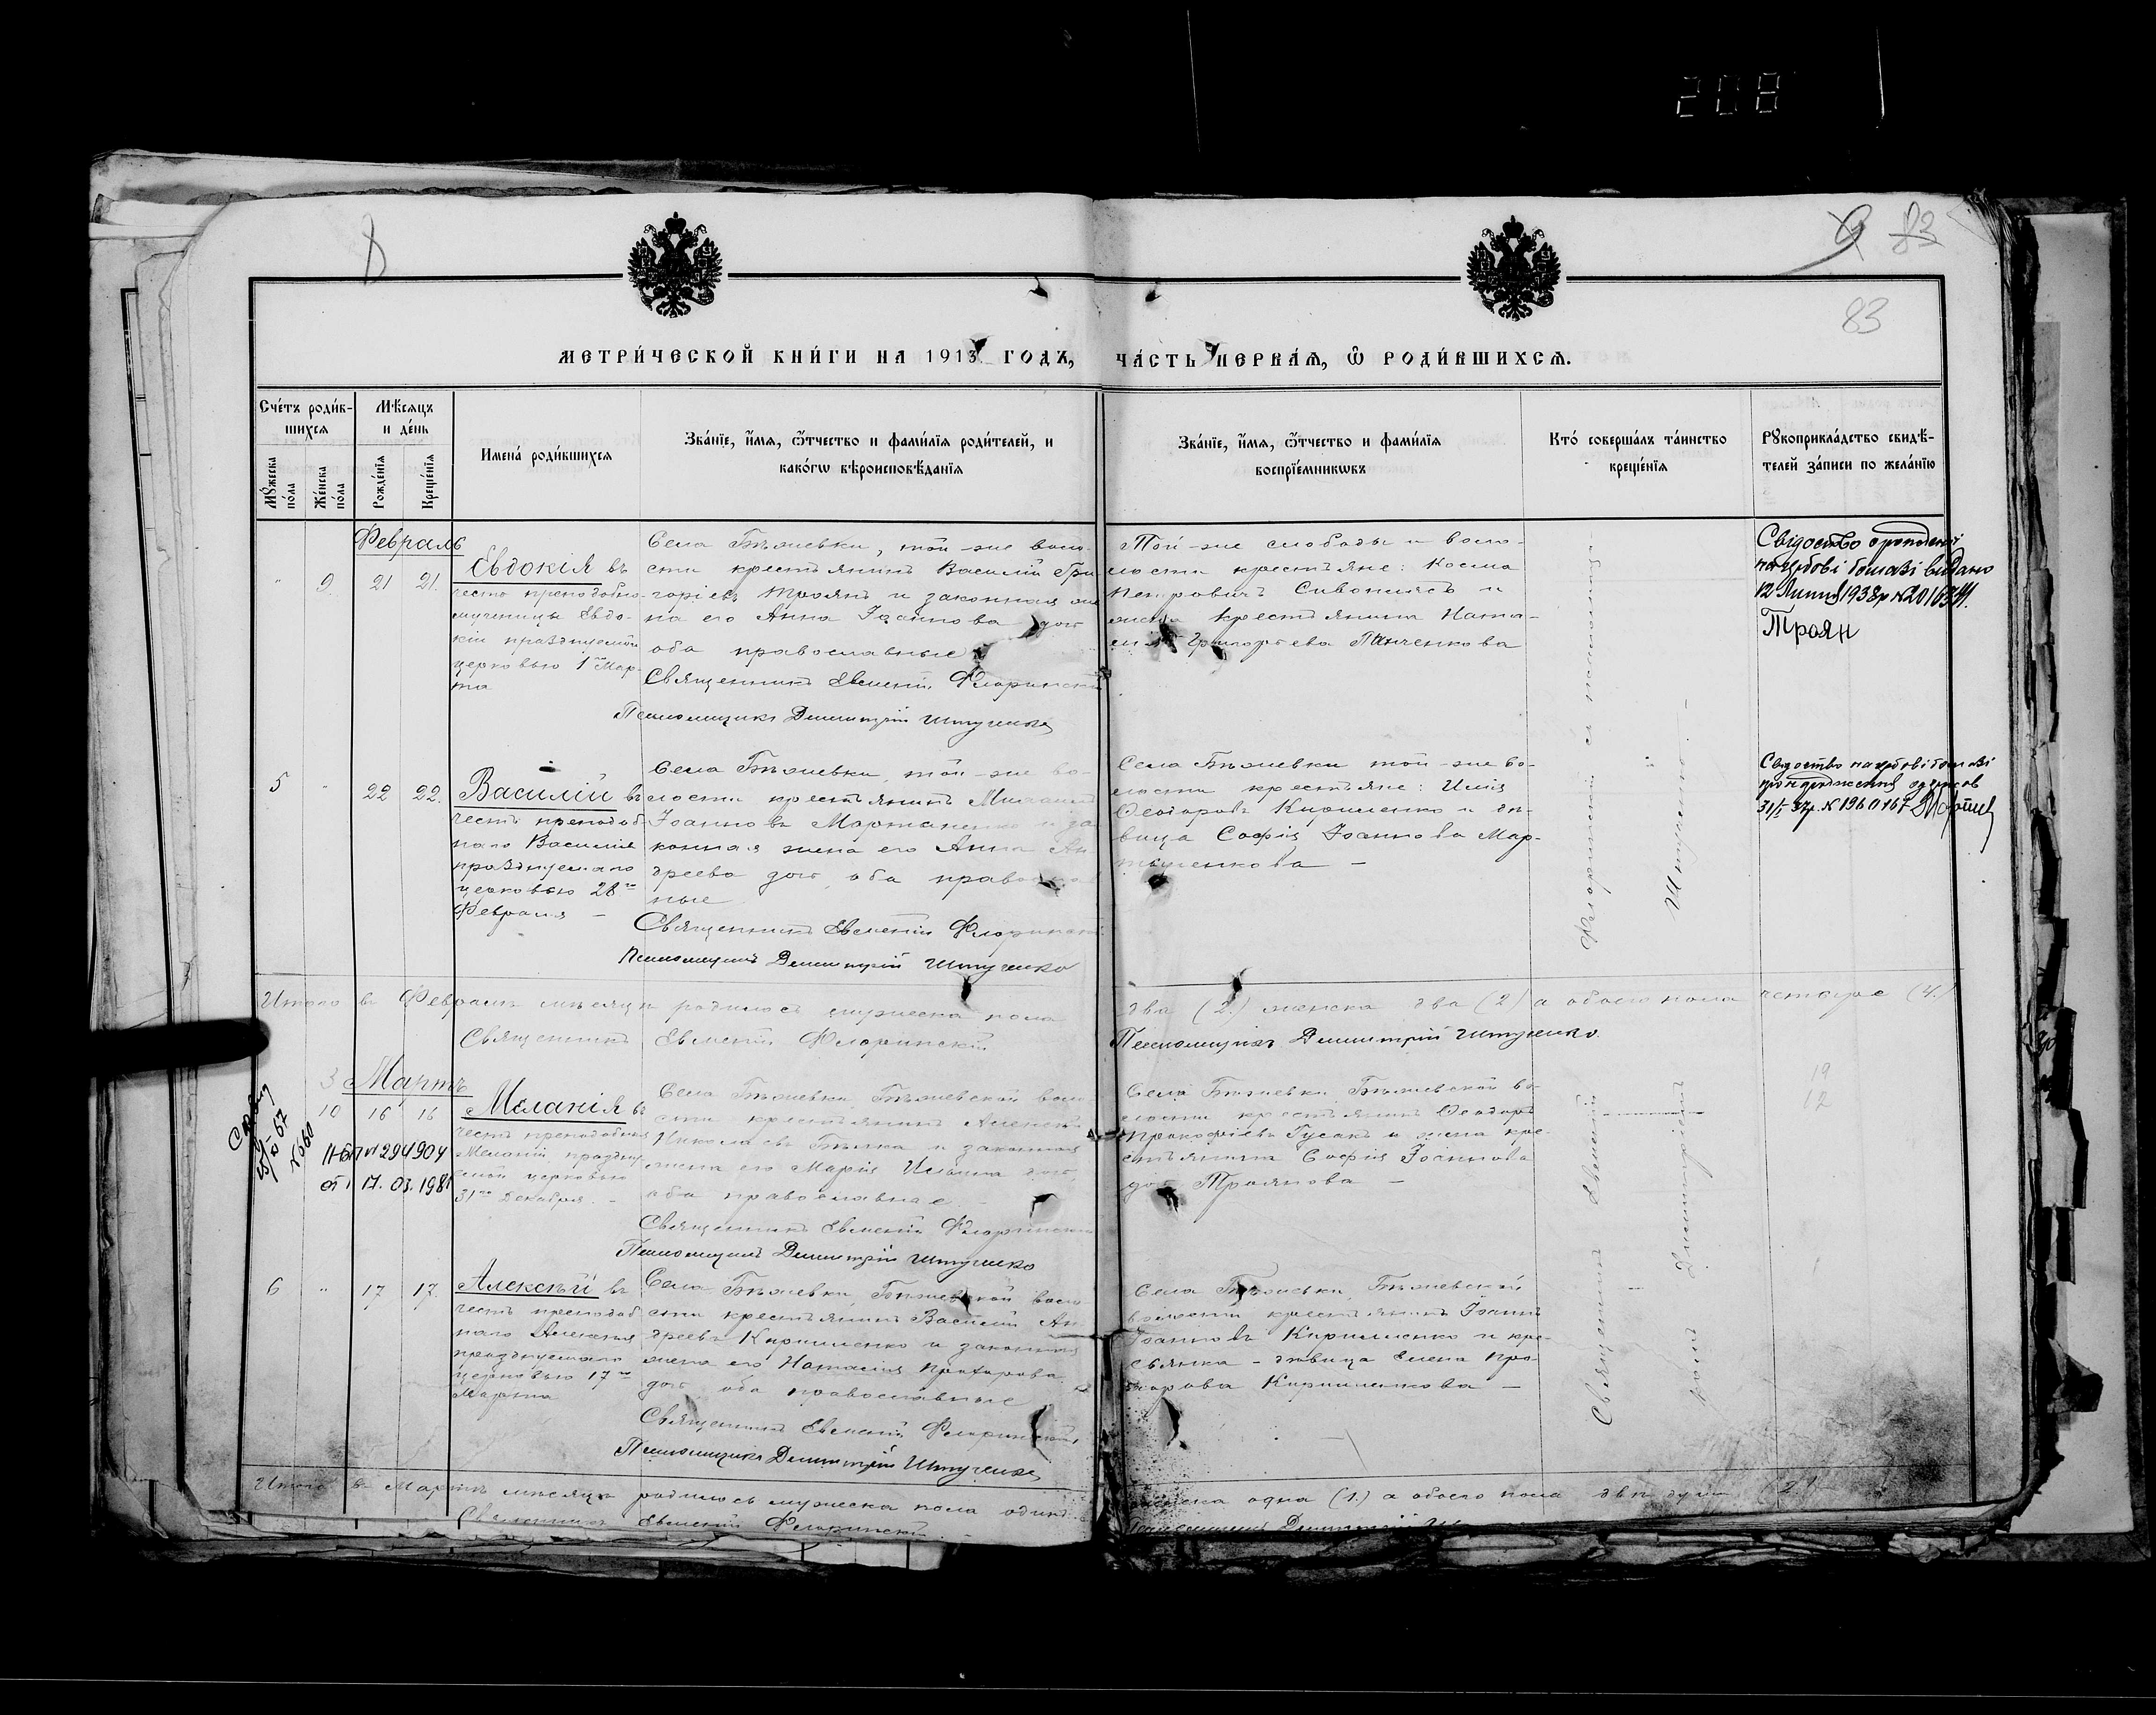 208
83
83
МЕТРИ́ЧЕСКОЙ КНИ́ГИ НА 1913 ГОДЪ, ЧА́СТЬ ПЕРВА́Ѧ, Ѽ РОДИ́ВШИХСѦ.
Сче́тъ роди́в-
шихсѧ
Мꙋ́жеска по́ла
Же́нска по́ла
Мѣ́сѧцъ
и де́нь
Рожде́нїѧ
Креще́нїѧ
Имена́ роди́вшихсѧ
Зва́нїе, и҆́мѧ, ѻ҆́тчество и фами́лїѧ роди́телей, и
како́гѡ вѣроисповѣ́данїѧ
Зва́нїе, и҆́мѧ, ѻ҆́тчество и фами́лїѧ
воспрїе́мникѡвъ
Кто́ соверша́лъ та́инство
креще́нїѧ
Рꙋкоприкла́дство свидѣ́-
телей за́писи по жела́нїю
Февраль
" 9. 21 21.
Евдокія въ
честь преподобно-
мученицы Евдо-
кіи празднуемой
церковью 1го Мар-
та
Села Бѣжевки, той-же воло-
сти крестьянинъ Василій Гри
горіевъ Троянъ и законная же
на его Анна Іоаннова доч
оба православные
Священникъ Евменій Флоринскій
Псаломщикъ Димитрій Штученко
Той-же слободы и воло-
лости крестьяне: Косма
Петровичъ Сивоплясъ и
жена крестьянина Ната-
Григорьева Панченкова
Свідоство
на гербові бомазі видано
12 Липня 193 № 2016
Троян
5 " 22 22.
Василій въ
честь преподоб
наго Василія
празднуемаго
церковью 28го
Февраля –
Села Бѣжевки, той-же во-
лости крестьянинъ Михаилъ
Іоанновъ Мартыненко и за
конная жена его Анна Ан
дреева доч, оба правосла
ные
Священникъ Евменій Флоринскій
Псаломщикъ Димитрій Штученко
Села Бѣжевки той-же во-
лости крестьяне: Илія
Ѳеодоровъ Кириленко и дѣ-
вица Софія Іоаннова Мар-
тыненкова –
Свідоство на гербові бомазі
про народження
31/I 37р. № 1960167
Итого въ Февралѣ мѣсяцѣ родилось мужеска пола два (2.) женска два (2) а обоего пола четыре (4.)
Священникъ Евменій Флоринскій
Псаломщикъ Димитрій Штученко.
3 Мартъ
10 16 16
294904
17. 03. 1981
№ 660
Меланія въ
честь преподобныя
Меланіи праздну
емой церковью
31го Декабря. –
Села Бѣжевки, Бѣжевской воло
сти крестьянинъ Алексѣй
Николаевъ Бѣлка и законная
жена его Марія Ильина доч
оба православные –
Священникъ Евменій Флоринскій
Псаломщикъ Димитрій Штученко
Села Бѣжевки, Бѣжевской во-
лости крестьянинъ Ѳеодоръ
Прокофіевъ Гусакъ и жена кре-
стьянина Софія Іоаннова
доч Троянова –
19
12
6 " 17 17.
Алексѣй въ
честь преподоб
наго Алексія
празднуемаго
церковью 17го
Марта
Села Бѣжевки, Бѣжевской воло
сти крестьянинъ Василій Ан
дреевъ Кириленко и законная
жена его Наталія Прохорова
доч оба православные
Священникъ Евменій Флоринскій
Псаломщикъ Димитрій Штученко
Села Бѣжевки, Бѣжевской
волости крестьянинъ Іоаннъ
Іоанновъ Кириленко и кре-
стьянка – дѣвица Елена Про-
хорова Кириленкова –
Священникъ Евменій Флоринскій и псаломщ-
Димитрій Штученко. –
Итого въ Мартѣ мѣсяцѣ родилось мужеска пола одинъ женска одна (1.) а обоего пола двѣ души (2.)
Священникъ Евменій Флоринскій.
Псаломщикъ Димитрій